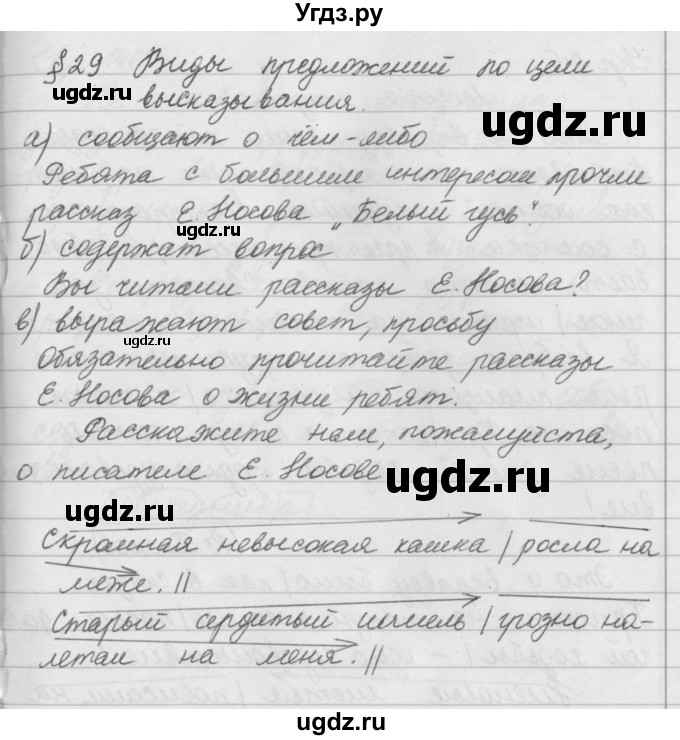 Угдз.ру
§29 Виды предложений по цели
gdz.ru
высказывания.
ugdz.ru
а) сообщают о чём-либо
Ребята с большим интересом прочли
рассказ Е. Носова „Белый гусь".
ugdz.ru
б) содержат вопрос
Вы читали рассказы Е. Носова?
ugdz.ru
в) выражают совет, просьбу
ugdz.ru
Обязательно прочитайте рассказы
Е. Носова о жизни ребят.
Расскажите нам, пожалуйста,
о писателе Е. Носове
ugdz.ru
ugdz.ru
Скромная невысокая кашка | росла на
меже. ||
Старый сердитый шмель | грозно на-
летал на меня. ||
ugdz.ru
ugdz.ru